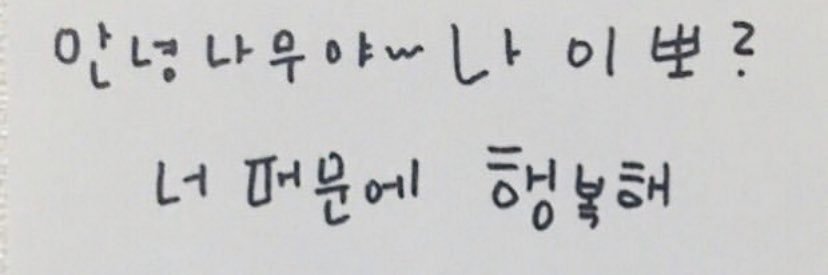 안녕 나무야~ 나 이뽀?
너 때문에 행복해